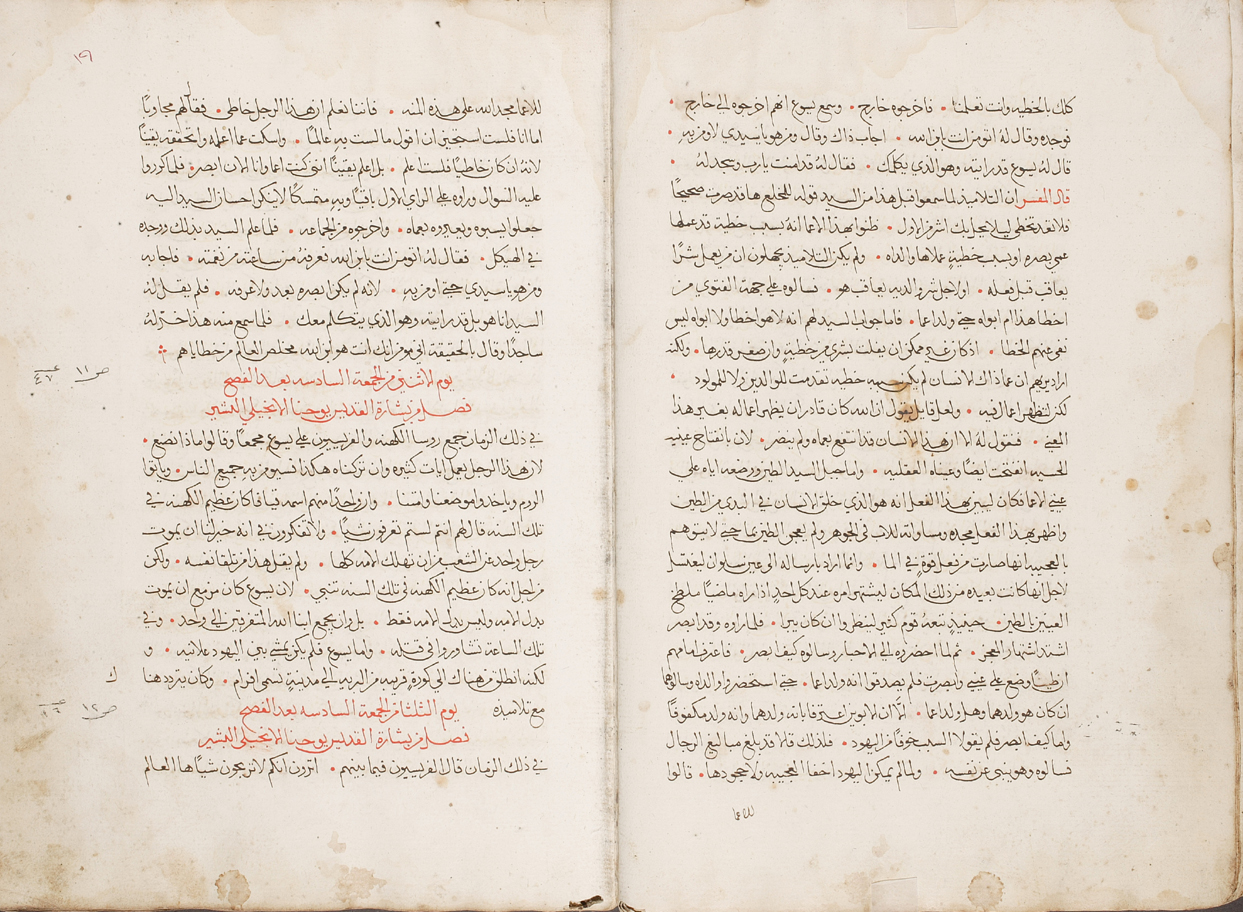 كلك بالخطيه وانت تعلمنا • فاخرجوه خارج • وسمع يسوع انهم اخرجوه الي خارج •
فوجده وقال له اتومن انت بابن الله • اجاب ذاك وقال ومن هو يا سيدي لاومن به •
قال له يسوع قد رايته وهو الذي يكلمك • فقال له قد امنت يا رب وسجد له •
قال المفسر ان التلاميذ لما سمعوا قبل هذا من السيد قوله للمخلع ها قد صرت صحيحًا
فلا تعد تخطي ليلا يحل بك اشر من الاول • ظنوا بهذا الاعما انه بسبب خطية قد عملها
عمي بصره او بسبب خطيةٍ عملاها والداه • ولم يكن التلاميذ يجهلون ان من يعمل شرًا
يعاقب قبل فعله • او لاجل شر والديه يعاقب هو • فسالوه علي جهة الفتوي من
اخطا هذا ام ابواه حتي ولد اعما • فاما جواب السيد لهم انه لا هو اخطا ولا ابواه ليس
نفي عنهم الخطا • اذ كان غير ممكن ان يفلت بشري من خطيةٍ وان صغر قدرها • ولكنه
اراد يريهم ان عما ذاك الانسان لم يكن خطيه تقدمت للوالدين ولا للمولود •
لكن لتظهر اعمال فيه • ولعل قايل يقول ان الله كان قادر ان يظهر اعماله بغير هذا
المعني • فنقول له اما ان هذا الانسان قد انتفع بعماه ولم ينضر • لان بانفتاح عينيه
الحسيه انفتحت ايضًا عيناه العقليه • واما جبل السيد الطين ووضعه اياه علي
عيني الاعما فكان ليبين بهذا الفعل انه هو الذي خلق الانسان في البدي من الطين
واظهر بهذا الفعل مجده ومساواته للاب في الجوهر ولم يعجن الطين بما حتي لا يتوهم
بالعجيبه انها صارت من فعل قوةٍ في الما • وانما اراد بارساله الي عين سلوان ليغتسل
لاجل انها كانت بعيده من ذلك المكان ليشتهر امره عند كل احدٍ اذا راه ماضيًا ملطخ
العينين بالطين • حينيذٍ تبعه قوم كثير لينظروا ان كان يبرا • فلما راوه وقد ابصر
اشتد اشتهار المعجز • ثم لما احضروه الي الاحبار وسالوه كيف ابصر • فاعترف امامهم
ان طينًا وضع علي عيني وابصرت فلم يصدقوا انه ولد اعما • حتي استحضروا والداه وسالوهما
ان كان هو ولدهما وهل ولد اعما • الا ان الابوين اعترفا بانه ولدهما وانه ولد مكفوفًا
واما كيف ابصر فلم يقولا السبب خوفًا من اليهود • فلذلك قالا قد بلغ مبالغ الرجال
فسالوه وهو ينبي عن نفسه • ولما لم يمكن اليهود اخفا العجيبه ولا جحودها • قالوا
للاعما
١٣٦
للاعما مجد الله علي هذه المنه • فاننا نعلم ان هذا الرجل خاطي • فقال لهم مجاوبًا
اما انا فلست استجيز ان اقول ما لست به عالمًا • واسكت عما اعمله واتحققه يقينًا
لانه ان كان خاطيًا فلست اعلم • بل اعلم يقينًا انني كنت اعما وانا الان ابصر • فلما كرروا
عليه السوال وراوه علي الراي الاول باقيًا وبه متمسكًا لا ينكر احسان السيد اليه
جعلوا يسبوه ويعيروه بعماه • واخرجوه من الجماعه • فلما علم السيد بذلك ووجده
في الهيكل • فقال له اتومن انت بابن الله فعرفه من ساعته من نغمته • فاجابه
ومن هو يا سيدي حتي اومن به • لانه لم يكن ابصره بعد ولا عرفه • فلم يقل له
السيد انا هو بل قد رايته وهو الذي يتكلم معك • فلما سمع منه هذا خر له
ساجدًا وقال بالحقيقة اني مومن انك انت هو ابن الله مخلص العالم من خطاياهم
يوم الاثنين من الجمعة السادسه بعد الفصح
فصل من بشارة القديس يوحنا الانجيلي البشير
ص ١١
في ذلك الزمان جمع روسا الكهنه والفريسيون علي يسوع مجمعًا وقالوا ماذا نصنع •
لان هذا الرجل يعمل ايات كثيره وان تركناه هكذا فسيومن به جميع الناس • وياتوا
الروم وياخذوا موضعنا وامتنا • وان واحدًا منهم اسمه قيافا كان عظيم الكهنه في
تلك السنه قال لهم انتم لستم تعرفون شيًا • ولا تفكرون في انه خير لنا ان يموت
رجل واحد عن الشعب من ان تهلك الامه كلها • ولم يقل هذا من تلقا نفسه • ولكن
من اجل انه كان عظيم الكهنه في تلك السنه تنبي • لان يسوع كان مزمع ان يموت
بدل الامه وليس بدل الامه فقط • بل وان يجمع ابنا الله المتفرقين الي واحد • وفي
تلك الساعة تشاوروا في قتله • واما يسوع فلم يكن يمشي بين اليهود علانيه • و
لكنه انطلق من هناك الي كورةٍ قريب من البريه الي مدينةٍ تسمي افرام • وكان يتردد هنا
ك
مع تلاميذه يوم الثلثا من الجمعة السادسه بعد الفصح
فصل من بشارة القديس يوحنا الانجيلي البشير
ص ١٢
في ذلك الزمان قال الفريسيون فيما بينهم • اترون انكم لا تربحون شيًا ها العالم